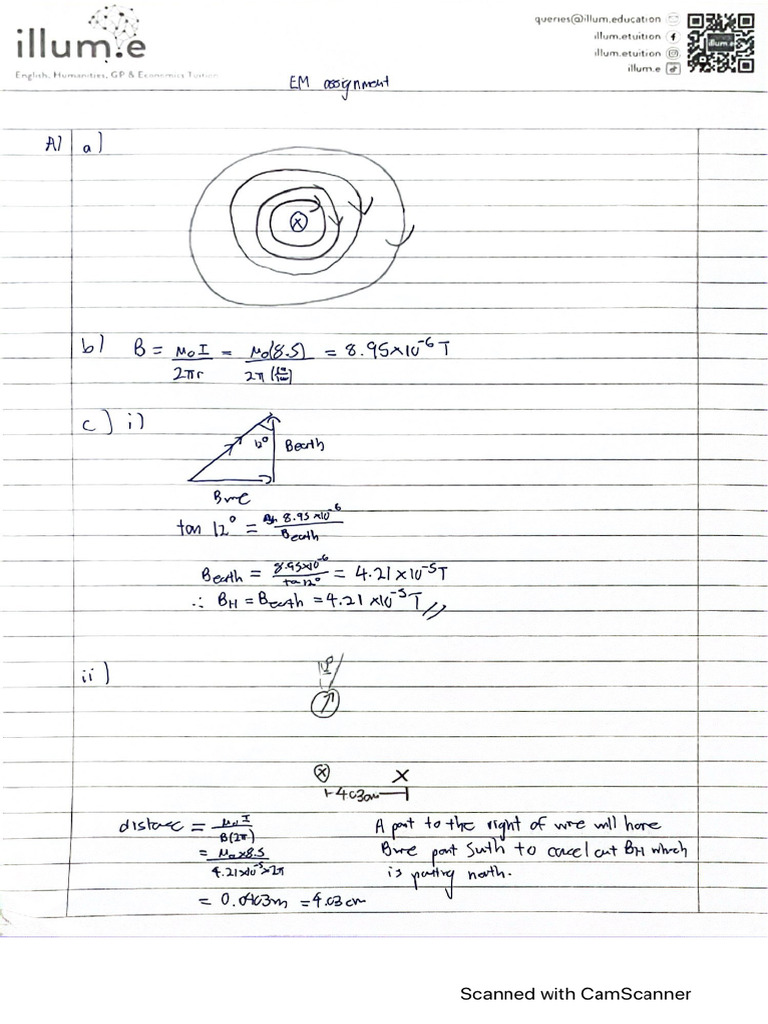 illum.e
English, Humanities, GP & Economics Tuition
queries@illum.education
illum.etuition
illum.etuition
illum.e
illum.e
EM assignment
A1 a)
b) B = μ₀I / 2πr = μ₀(8.5) / 2π = 8.95×10⁻⁶ T
c) i)
12° Bearth
Bwire
tan 12° = 8.95×10⁻⁶ / Bearth
Bearth = 8.95×10⁻⁶ / tan 12° = 4.21×10⁻⁵ T
∴ BH = Bearth = 4.21×10⁻⁵ T //
ii)
X
4.03cm
distance = μ₀I / B(2π)
= μ₀×8.5 / 4.21×10⁻⁵×2π
= 0.0403m = 4.03cm
A point to the right of wire will have
Bwire point South to cancel out BH which
is pointing north.
Scanned with CamScanner